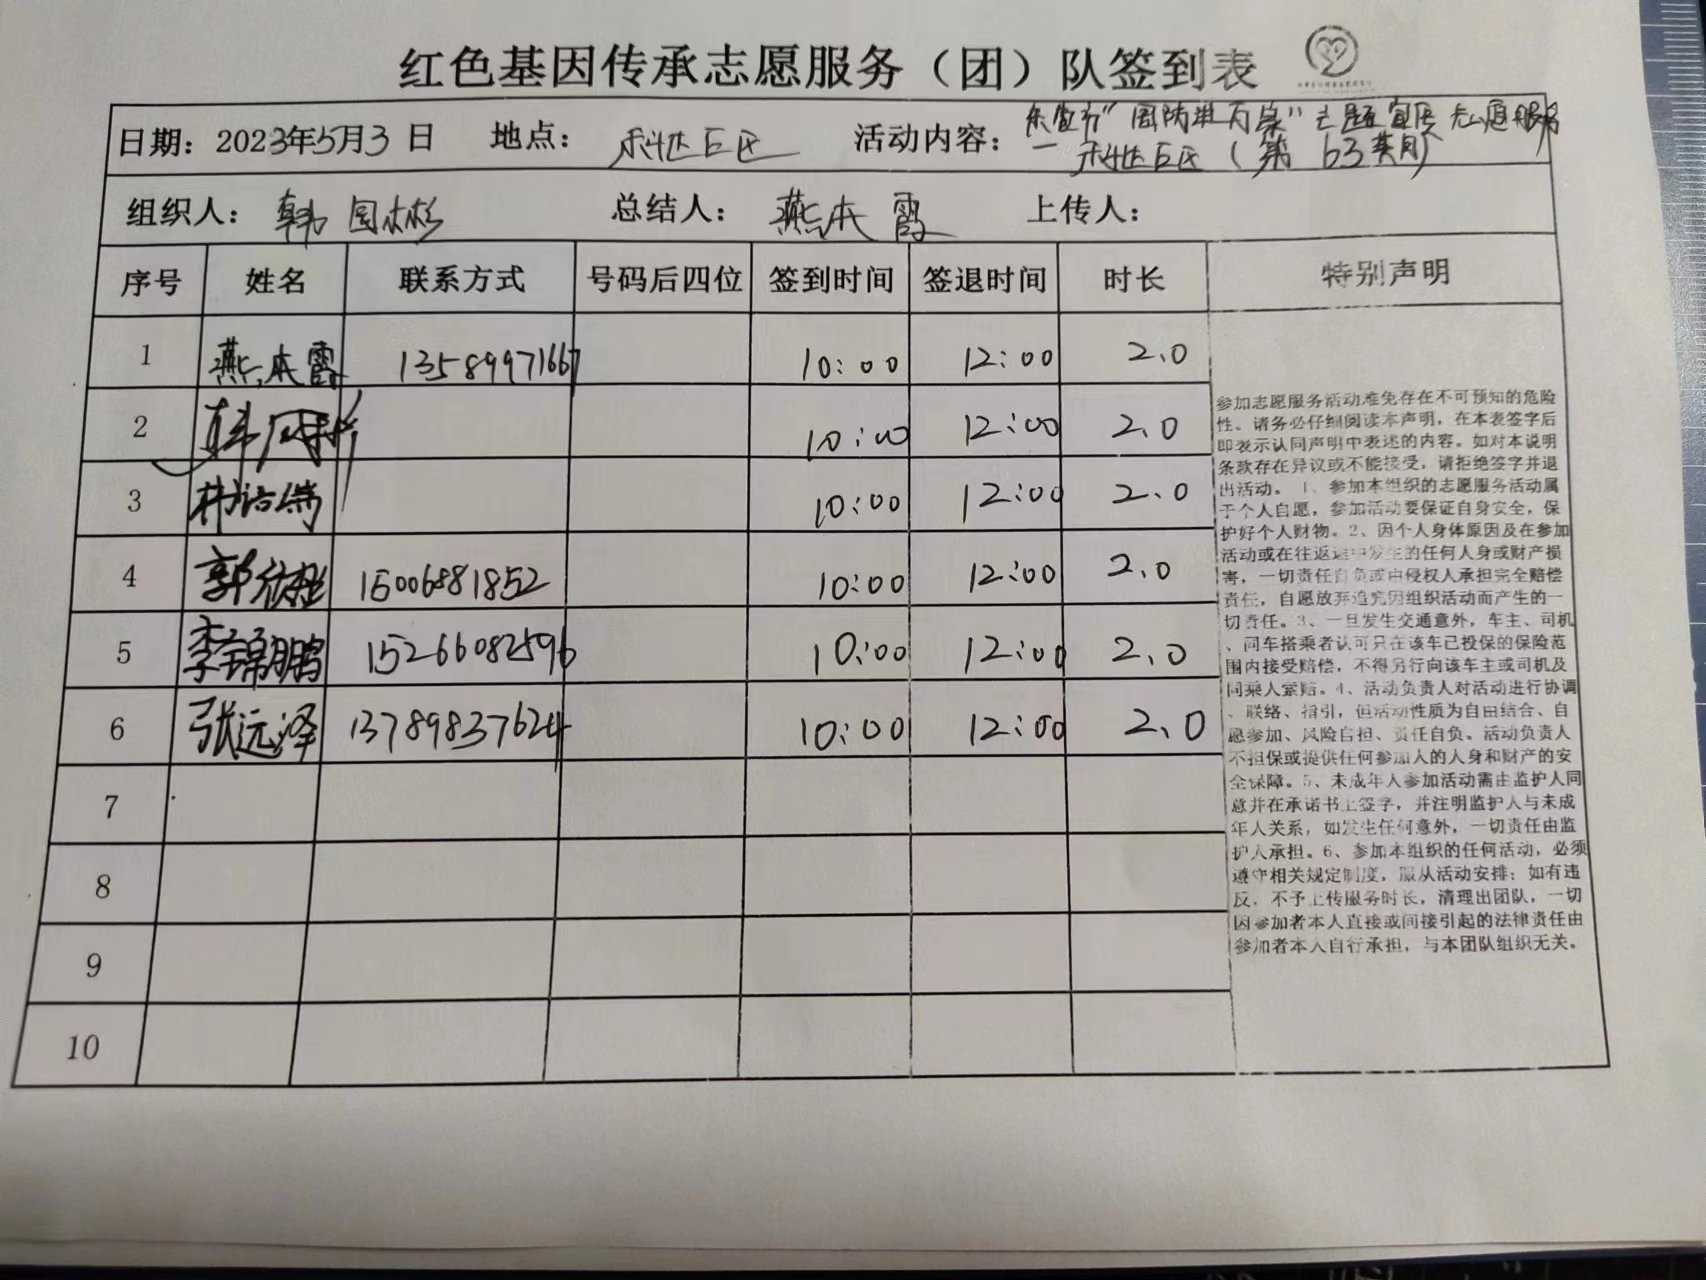 红色基因传承志愿服务（团）队签到表
日期：2023年5月3日 地点： 活动内容： 东营市"国防进万家"主题宣传志愿服务
一 利达B区（第63英雨）
组织人：韩国彬 总结人：燕本霞 上传人：
序号 姓名 联系方式 号码后四位 签到时间 签退时间 时长 特别声明
1 燕本霞 13589971667 10：00 12：00 2.0
2 10：00 12：00 2.0
3 10：00 12：00 2.0
4 15006881852 10：00 12：00 2.0
5 李锦鹏 15266082596 10：00 12：00 2.0
6 张远泽 13789837624 10：00 12：00 2.0
7
8
9
10
参加志愿服务活动难免存在不可预知的危险
性。请务必仔细阅读本声明，在本表签字后
即表示认同声明中表述的内容。如对本说明
条款存在异议或不能接受，请拒绝签字并退
出活动。1、参加本组织的志愿服务活动属
于个人自愿，参加活动要保证自身安全，保
护好个人财物。2、因个人身体原因及在参加
活动或在往返途中发生的任何人身或财产损
害，一切责任自负或由侵权人承担完全赔偿
责任，自愿放弃追究因组织活动而产生的一
切责任。3、一旦发生交通意外，车主、司机
、同车搭乘者认可只在该车已投保的保险范
围内接受赔偿，不得另行向该车主或司机及
同乘人索赔。4、活动负责人对活动进行协调
、联络、指引，但活动性质为自由结合、自
愿参加、风险自担、责任自负。活动负责人
不担保或提供任何参加人的人身和财产的安
全保障。5、未成年人参加活动需由监护人同
意并在承诺书上签字，并注明监护人与未成
年人关系，如发生任何意外，一切责任由监
护人承担。6、参加本组织的任何活动，必须
遵守相关规定制度，服从活动安排；如有违
反，不予上传服务时长，清理出团队，一切
因参加者本人直接或间接引起的法律责任由
参加者本人自行承担，与本团队组织无关。